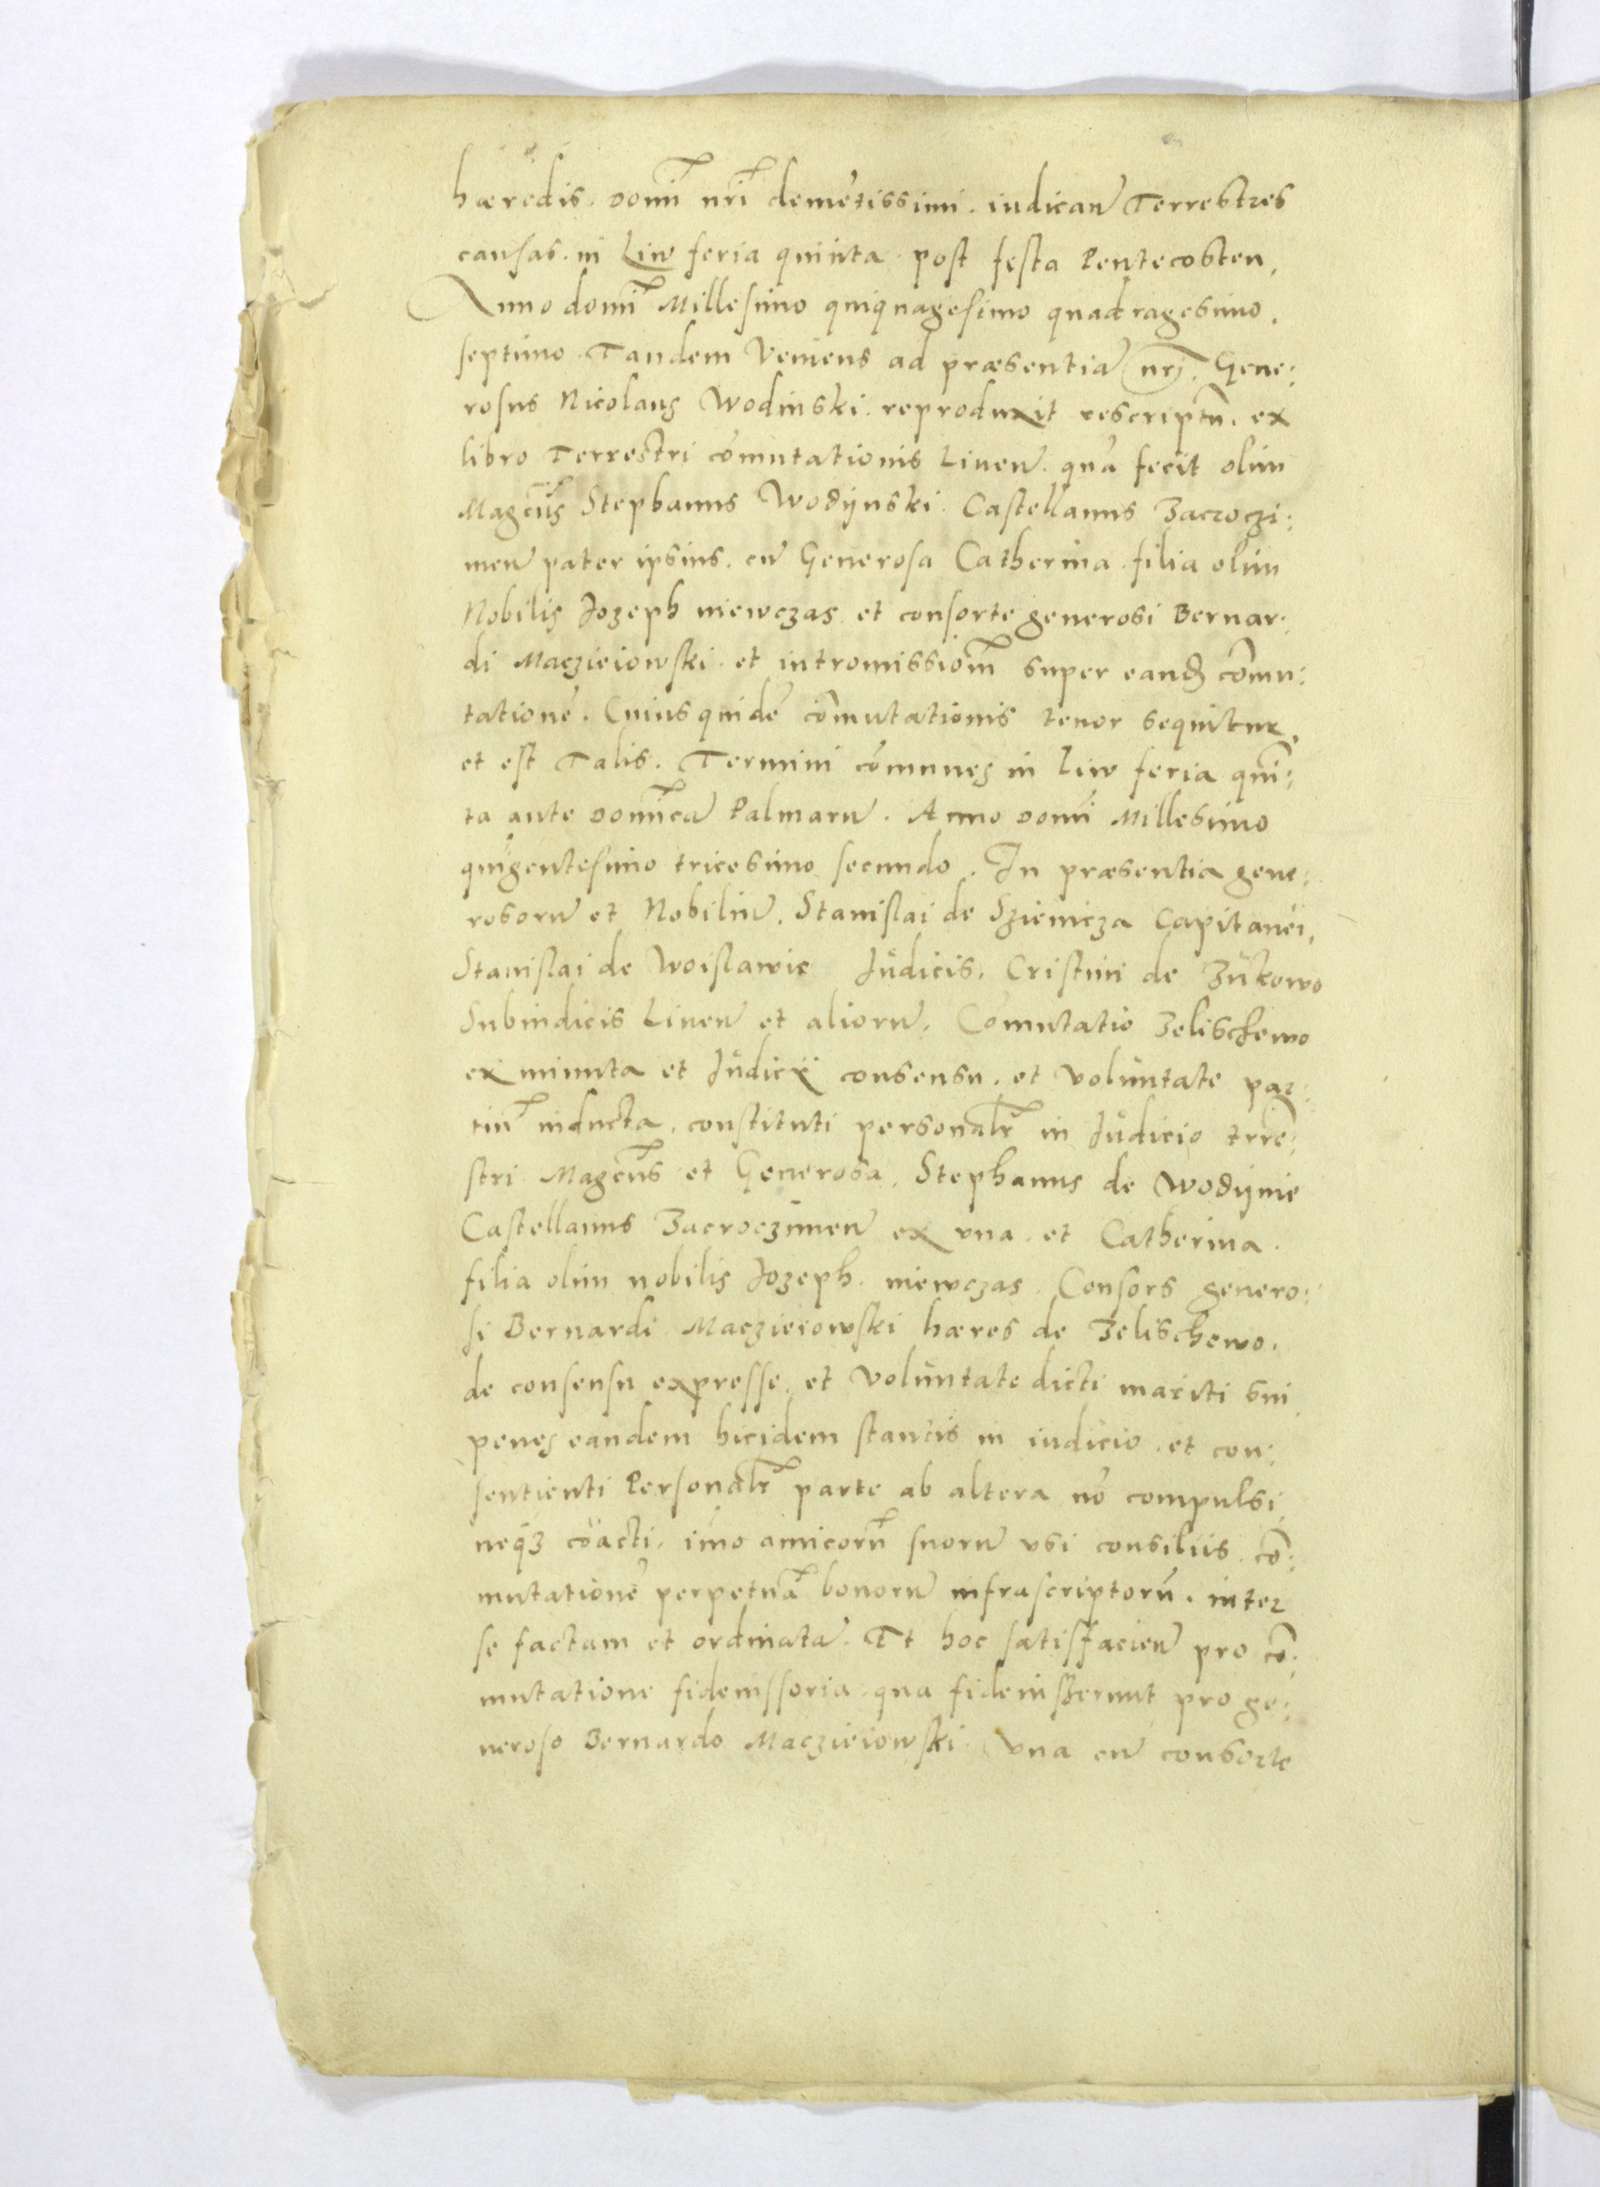 hæredis. domĩ nrĩ clemẽtissimi. iudican̄ Terrestres
causas. in Liw feria quinta post festa Pentecosten,
Anno domĩ Millesimo quiqnagesimo quadragesimo.
septimo. Tandem Veniens ad præsentiã nrj. Gene:
rosus Nicolaus Wodinski. reproduxit rescriptũ. ex
libro Terrestri cõmutationis Liuen̄. quã fecit olim
Magcũs Stephanus Wodÿnski. Castellanus Zacroczi:
men̄ pater ipsius. cũ Generosa Catherina filia olim
Nobilis Jozeph niewczas et consorte generosi Bernar:
di Maczieiowski. et intromissionẽ super eand. cõmu:
tationẽ. Cuius quidẽ cõmutationis tenor sequitur,
et est Talis. Termini cõmunes in Liw feria quĩ:
ta ante domĩcã Palmarũ. Anno domĩ Millesimo
quĩgentesimo tricesimo secundo. In præsentia gene:
rosorũ et Nobiliũ. Stanislai de Szienicza Capitanei,
Stanislai de Woislawic Judicis. Cristini de Zukowo
Subiudicis Liuen̄ et aliorũ. Cõmutatio Zelischewo
ex minuta et Judicÿ consensu. et voluntate par:
tiũ inducta. constituti personalr̃ in Judicio trrẽ:
stri Magcũs et Generosa. Stephanus de Wodÿnie
Castellanus Zacroczimen̄ ex vna. et Catherina.
filia olim nobilis Jozeph. niewczas. Consors genero:
si Bernardi Maczieiowski hæres de Zelischewo.
de consensu expresse. et voluntate dicti mariti sui
penes eandem hicidem stantis in iudicio. et con:
sentienti Personalr̃ parte ab altera nõ compulsi
neq3 cöacti. imo amicorũ suorũ vsi consiliis. cõ:
mutationẽ perpetuã bonorũ infrascriptorũ. inter
se factam et ordinatã. Et hoc satisfacien̄ pro cõ:
mutatione fideiussoria. qua fideiusserunt pro ge:
neroso Bernardo Maczieiowski. vna cũ consorte